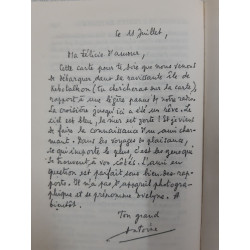 le 11 Juillet,
Ma Félicie d'amour,
Cette carte pour te dire que nous venons
de débarquer dans la ravissante île de
(tu chercheras sur la carte),
rapport à une légère panne de notre radar.
La croisière jusqu'ici a été un rêve. Le
ciel est bleu, la mer est forte ! Et je viens
de faire la connaissance d'un ami char-
mant. Dans des voyages de plaisance,
ce qui importe le plus c'est des gens qui
se trouvent à vos côtés. L'ami en
question est parfait sous bien des rap-
ports. Il n'a pas d'appareil photogra-
phique et se prénomme Evelyne. A
bientôt.
Ton grand
Antoine